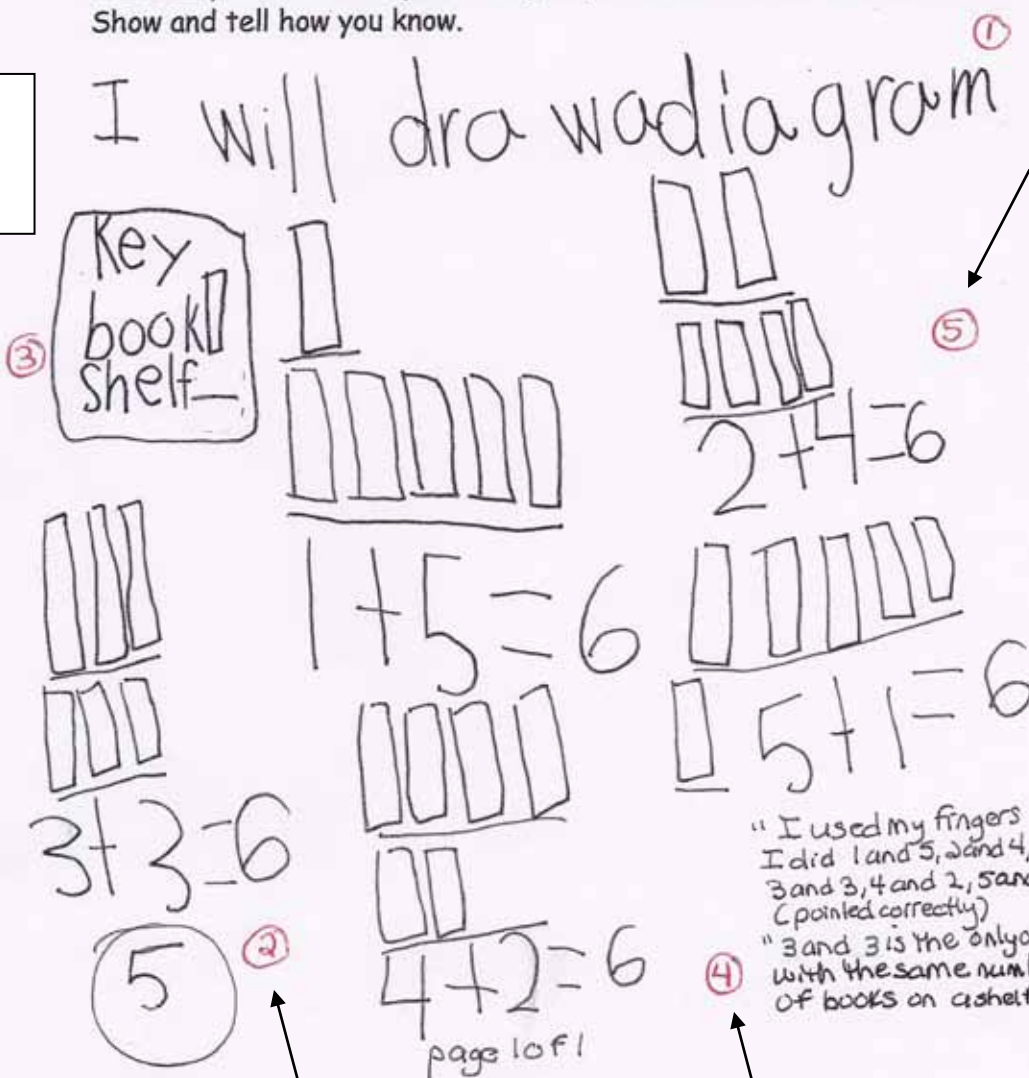 Show and tell how you know.
①
I will dra wadiagram
Key
book
shelf
③
⑤
2+4=6
1+5=6
5+1=6
3+3=6
4+2=6
5
②
④
"I used my fingers
I did 1 and 5, 2 and 4,
3 and 3, 4 and 2, 5 and
(pointed correctly)
"3 and 3 is the only
with the same
of books on a shelf
page 1 of 1